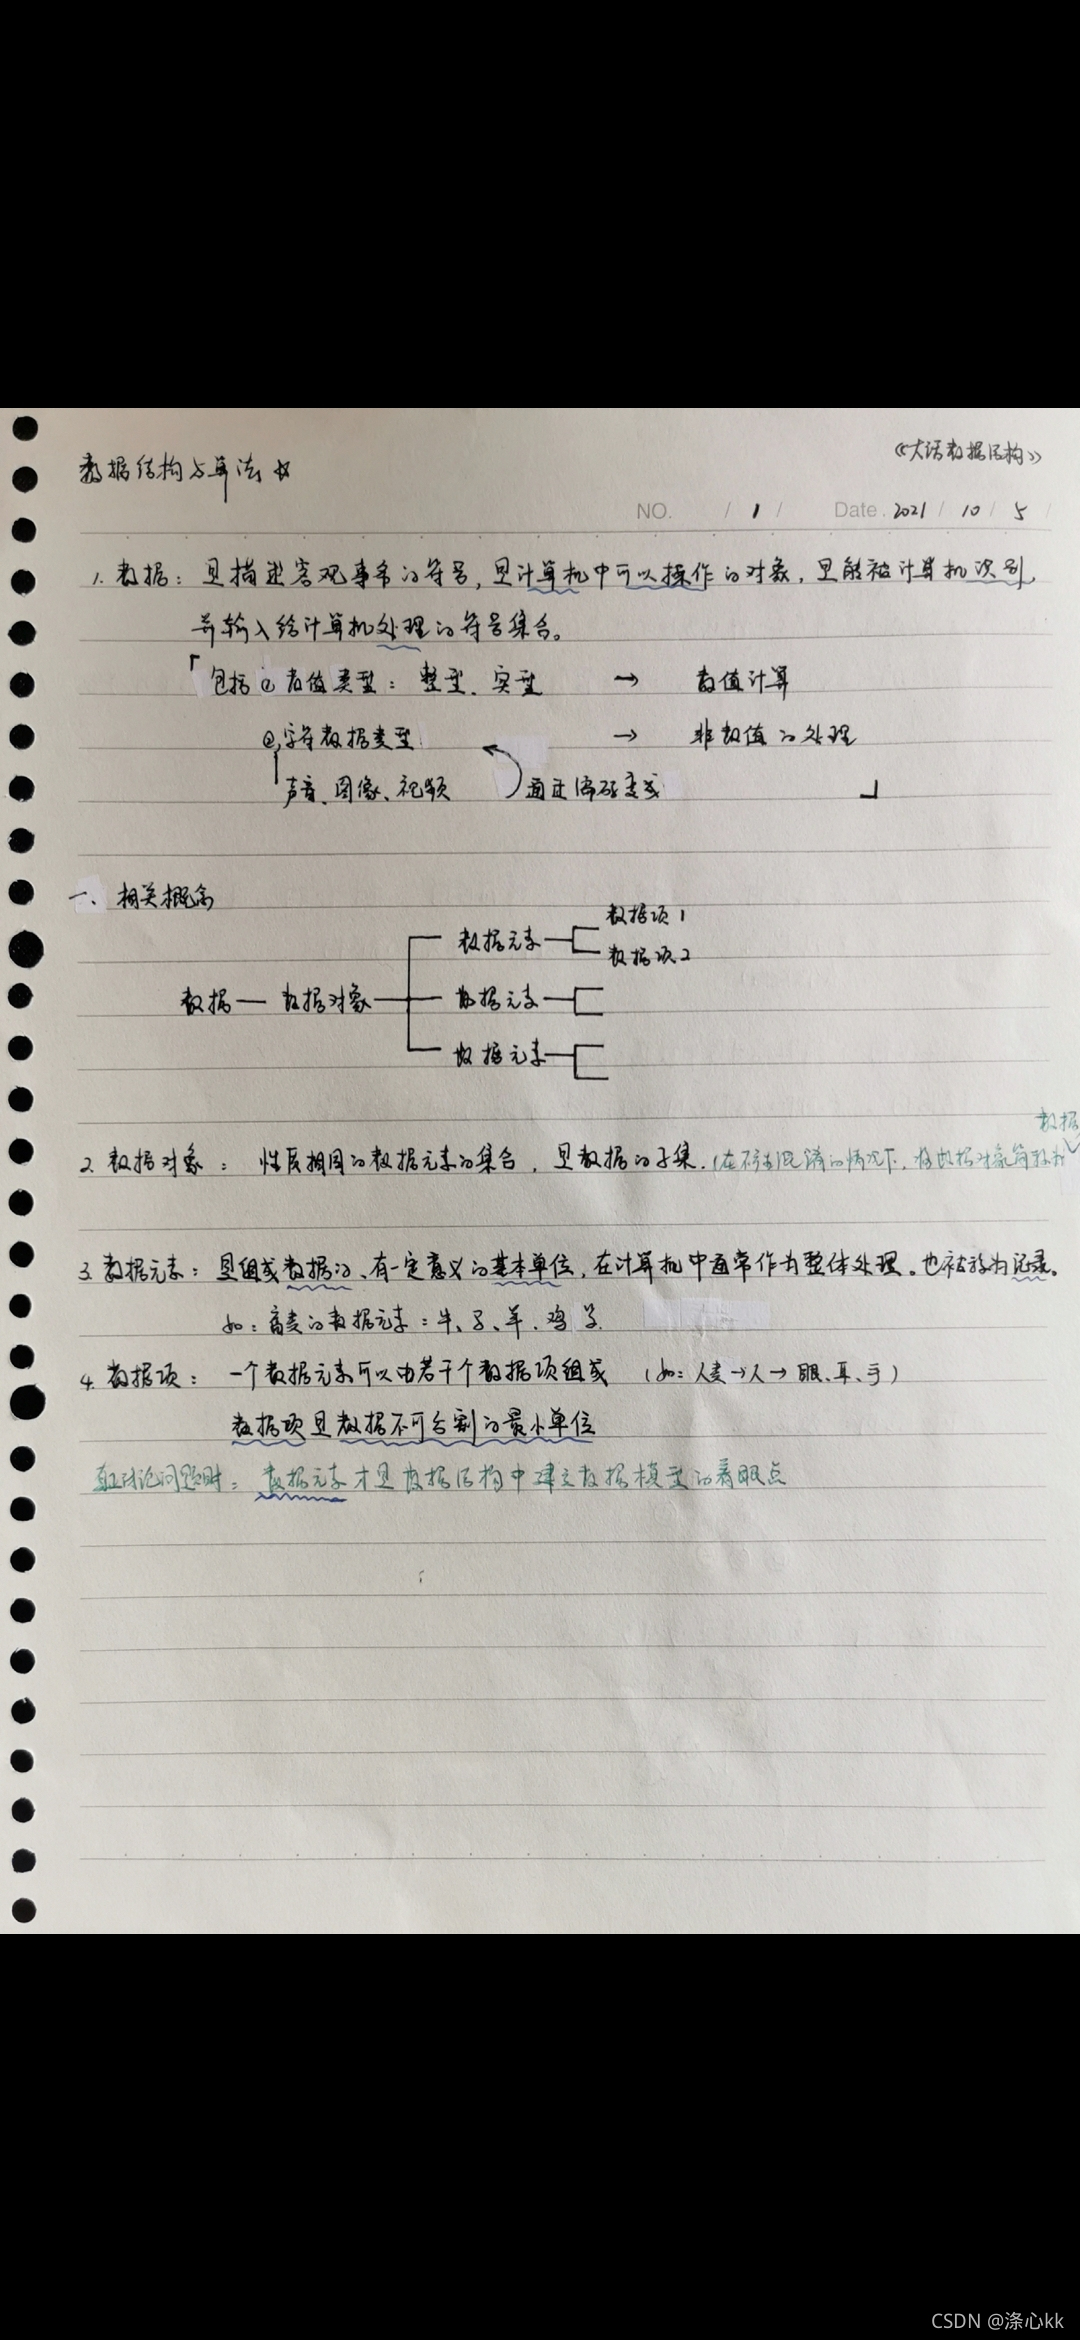 《大话数据结构》
数据结构与算法
NO. / 1 / Date. 2021 / 10 / 5
1. 数据：是描述客观事务的符号，是计算机中可以操作的对象，是能被计算机识别，
并输入给计算机处理的符号集合。
「包括 数值类型：整型、实型 → 数值计算
②字符数据类型 → 非数值的处理
声音、图像、视频 通过编码变成 」
一、相关概念
数据项1
数据元素
数据项2
数据 — 数据对象 数据元素
数据元素
数据
2. 数据对象：性质相同的数据元素的集合，是数据的子集。(在不产生混淆的情况下，将数据对象简称为
3. 数据元素：是组成数据的、有一定意义的基本单位，在计算机中通常作为整体处理。也被称为记录。
如：畜类的数据元素：牛、马、羊、鸡等
4. 数据项：一个数据元素可以由若干个数据项组成 (如：人类→人→眼、耳、手)
数据项是数据不可分割的最小单位
真正讨论问题时：数据元素才是数据结构中建立数据模型的着眼点
CSDN @涤心kk